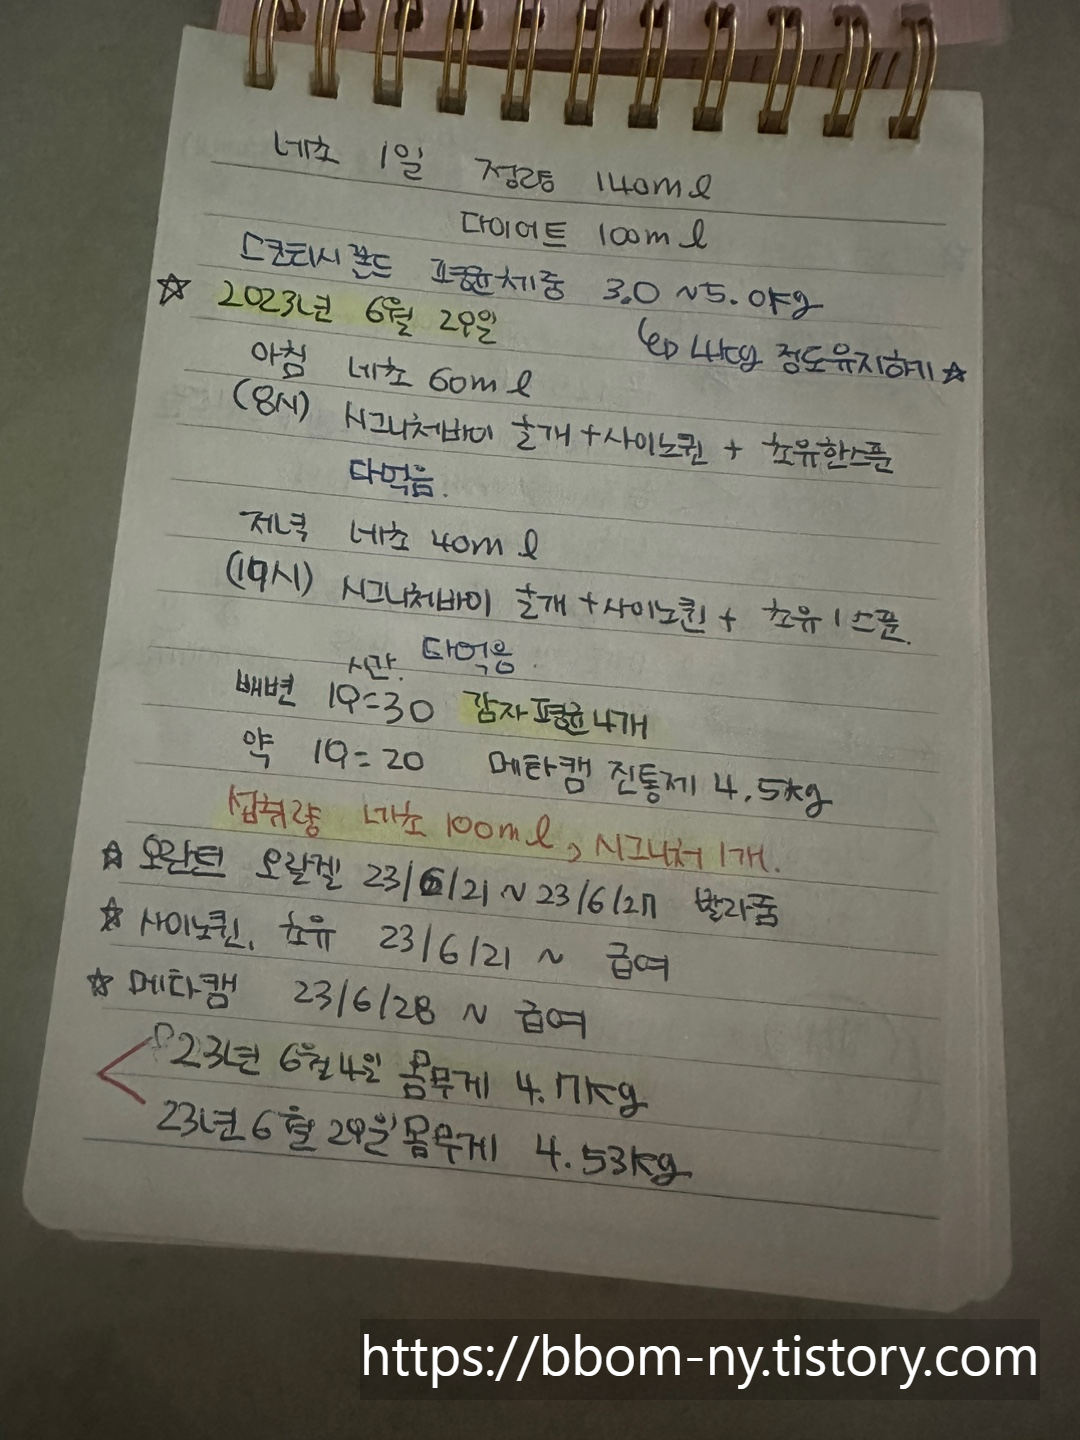 네츄 1일 정량 140ml
다이어트 100ml
스코티시폴드 평균체중 3.0~5.0kg
☆ 2023년 6월 29일
↳ 4kg 정도유지하기☆
아침 네츄 60ml
(8시) 시그니처바이 출개+사이노퀸 + 초유한스푼
다먹음.
저녁 네츄 40ml
(19시) 시그니처바이 출개+사이노퀸 + 초유 1스푼.
다먹음.
시간.
배변 19=30 감자평균4개
약 19=20 메타캠 진통제 4.5kg
섭취량 네츄 100ml, 시그니처 1개.
☆ 오란틴 오랄겔 23/6/21~23/6/27 발라줌
☆ 사이노퀸, 초유 23/6/21 ~ 급여
☆ 메타캠 23/6/28 ~ 급여
23년 6월4일 몸무게 4.17kg
23년 6월 29일 몸무게 4.53kg
https://bbom-ny.tistory.com